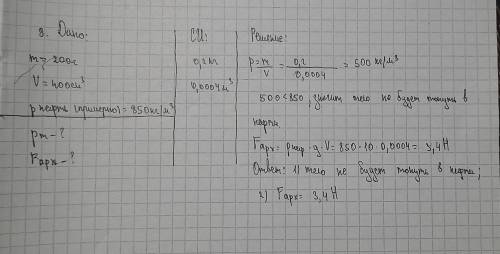 8. Дано:
m = 200г
V = 400см³
р нефти (примерно) = 850кг/м³
рт - ?
Fарх - ?
СИ:
0,2 кг
0,0004 м³
Решение:
р = m/V = 0,2/0,0004 = 500 кг/м³
500 < 850, значит тело не будет тонуть в
нефти.
Fарх = рнеф · g · V = 850 · 10 · 0,0004 = 3,4 Н
Ответ: 1) тело не будет тонуть в нефти;
2) Fарх = 3,4 Н